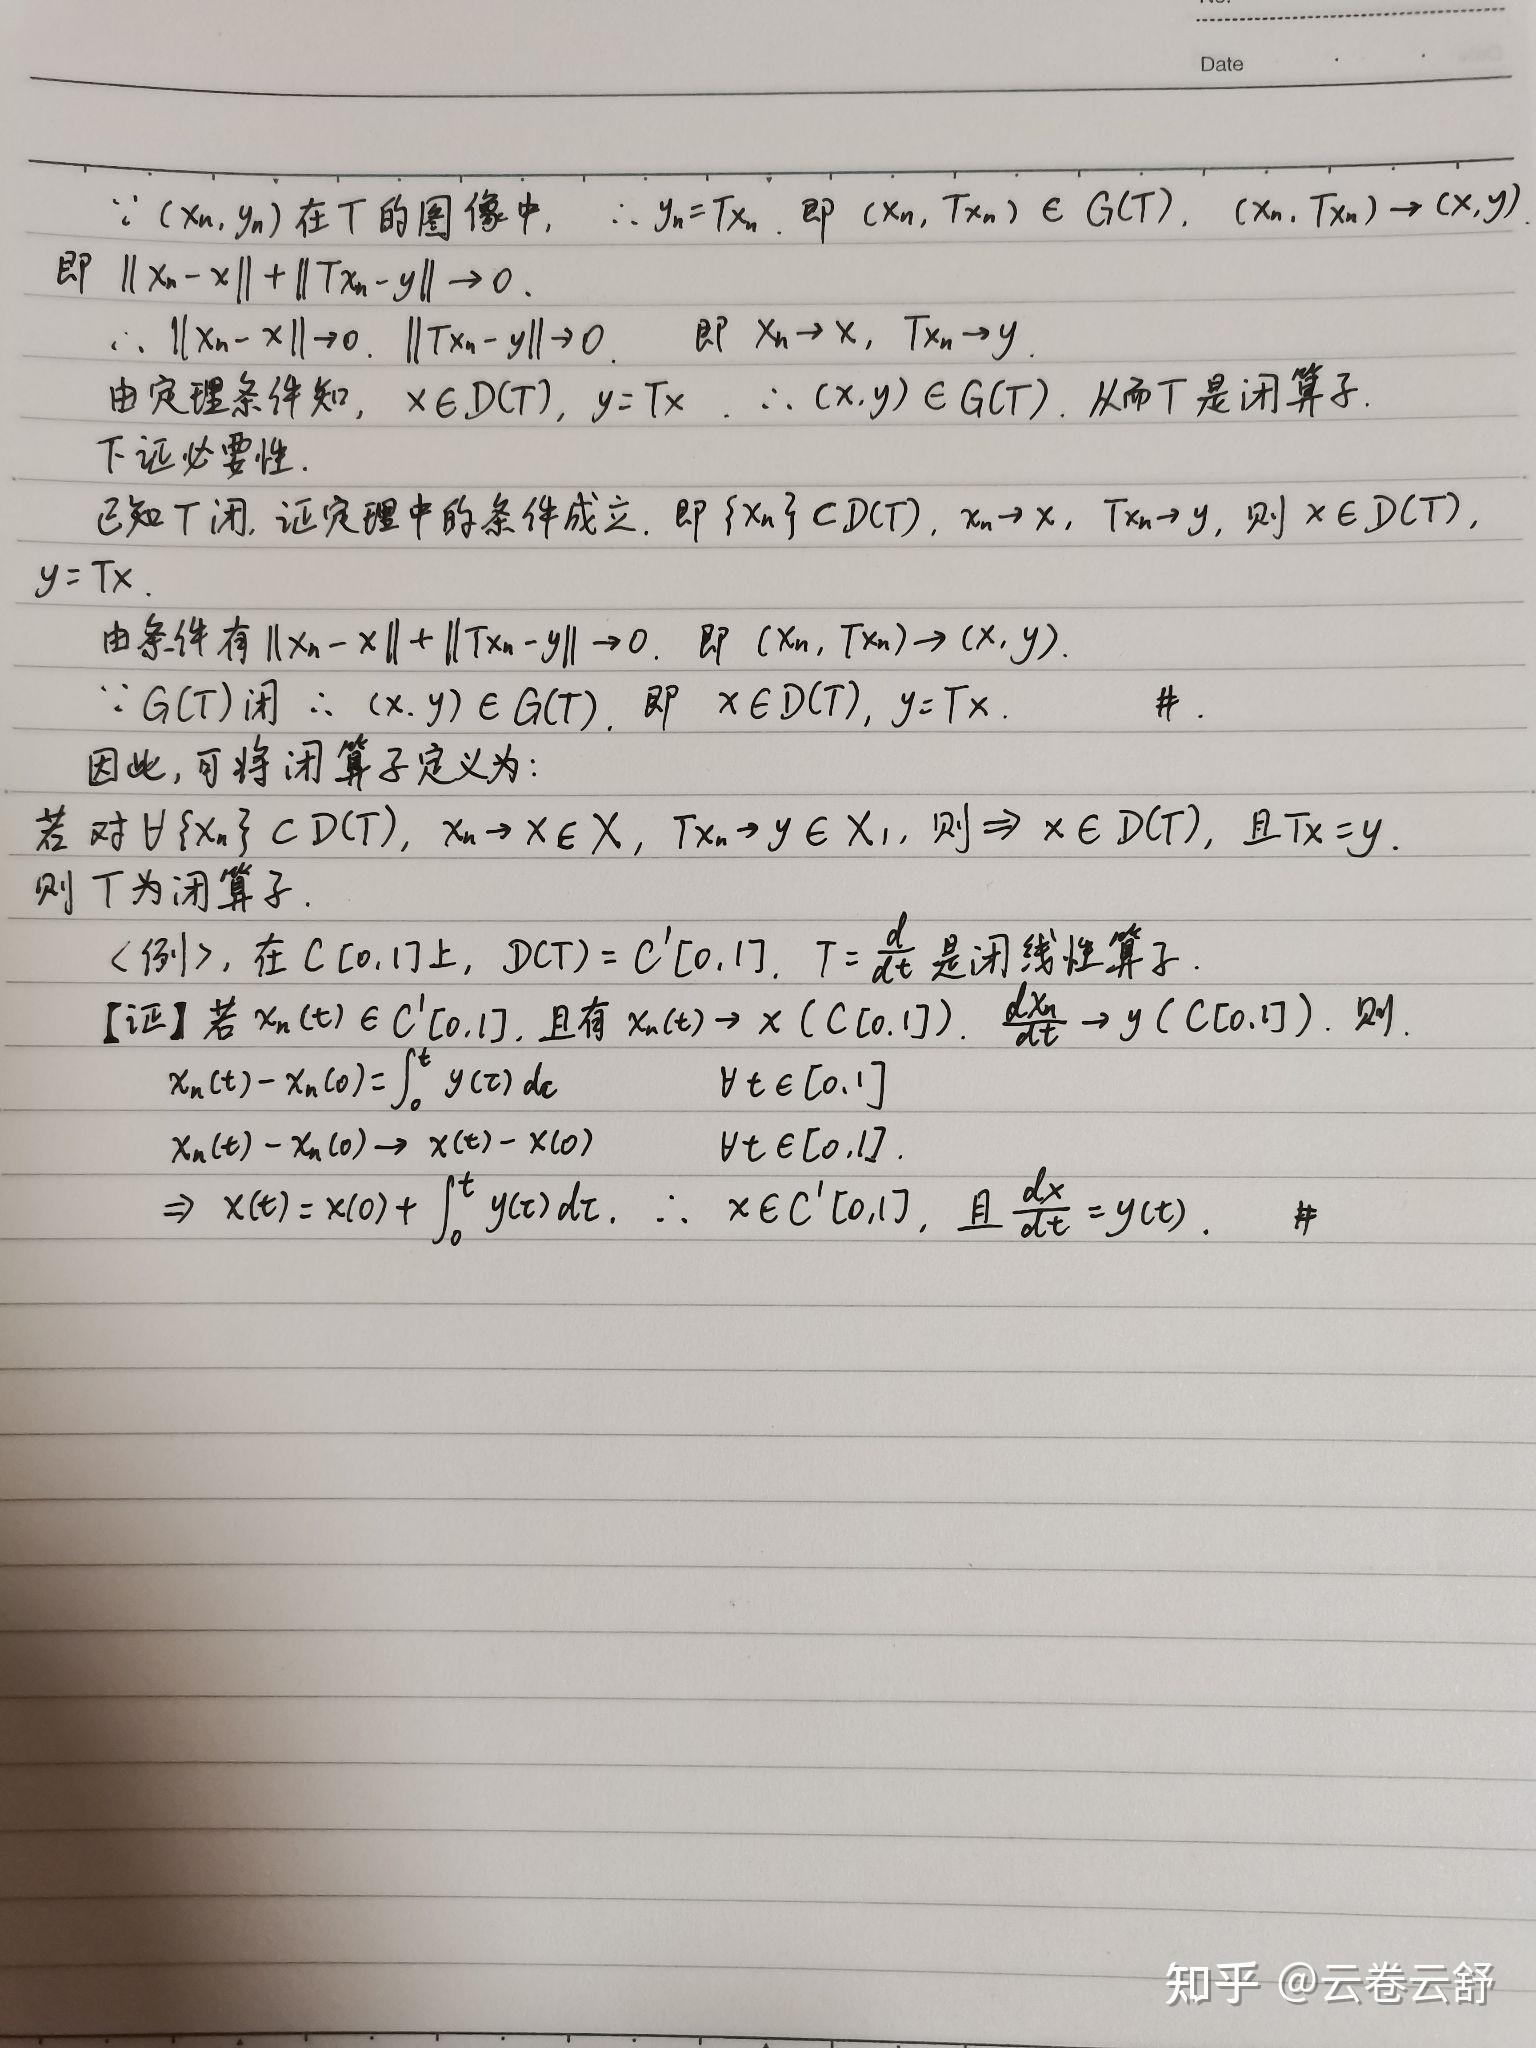 Date
∵ (xₙ, yₙ) 在 T 的图像中, ∴ yₙ = Txₙ. 即 (xₙ, Txₙ) ∈ G(T). (xₙ, Txₙ) → (x, y).
即 ‖xₙ - x‖ + ‖Txₙ - y‖ → 0.
∴ ‖xₙ - x‖ → 0. ‖Txₙ - y‖ → 0. 即 xₙ → x, Txₙ → y.
由定理条件知, x ∈ D(T), y = Tx. ∴ (x, y) ∈ G(T). 从而 T 是闭算子.
下证必要性.
已知 T 闭, 证定理中的条件成立. 即 {xₙ} ⊂ D(T), xₙ → x, Txₙ → y, 则 x ∈ D(T),
y = Tx.
由条件有 ‖xₙ - x‖ + ‖Txₙ - y‖ → 0. 即 (xₙ, Txₙ) → (x, y).
∵ G(T) 闭 ∴ (x, y) ∈ G(T). 即 x ∈ D(T), y = Tx. #.
因此, 可将闭算子定义为:
若对 ∀{xₙ} ⊂ D(T), xₙ → x ∈ X, Txₙ → y ∈ X₁, 则 ⇒ x ∈ D(T), 且 Tx = y.
则 T 为闭算子.
<例>, 在 C[0,1] 上, D(T) = C'[0,1]. T = d/dt 是闭线性算子.
【证】若 xₙ(t) ∈ C'[0,1], 且有 xₙ(t) → x (C[0,1]). dxₙ/dt → y (C[0,1]). 则.
xₙ(t) - xₙ(0) = ∫₀ᵗ y(τ) dτ ∀t ∈ [0,1]
xₙ(t) - xₙ(0) → x(t) - x(0) ∀t ∈ [0,1].
⇒ x(t) = x(0) + ∫₀ᵗ y(τ) dτ. ∴ x ∈ C'[0,1], 且 dx/dt = y(t). #
知乎 @云卷云舒